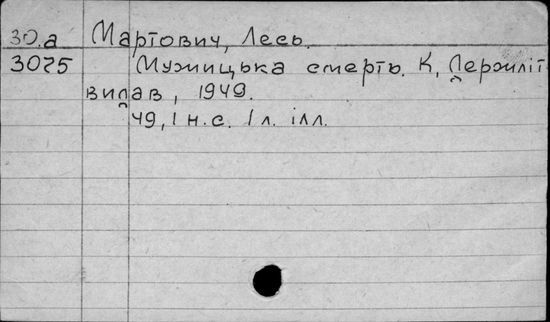 30.а Мартович, Лесь.
3075 Мужицька смерть. К, Держліт
видав, 1949.
49, 1 н.с. 1 л. ілл.